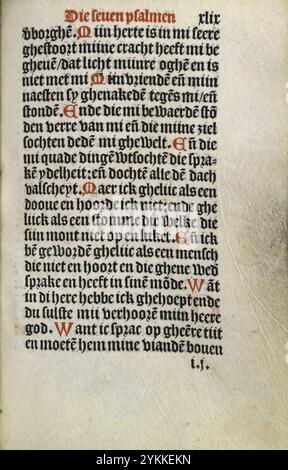 Die seuen psalmen xlix
vborghē. Mijn herte is in mi seere
ghestoort mijne cracht heeft mi be
gheuē/dat licht mijnre oghē en is
niet met mi Mijn vriendē eñ mijn
naesten sy ghenakedē tegēs mi/eñ
stondē. Ende die mi bewaerdē stō
den verre van mi eñ die mijne ziel
sochten dedē mi ghewelt. Eñ die
mi quade dingē wtsochtē die spra-
kē ydelheit: eñ dochtē alle dē dach
valscheyt. Maer ick ghelijc als een
dooue en hoorde ick niet: ende ghe
lijck als een stomme die welke die
sijn mont niet open luket. Eñ ick
bē gewordē ghelijc als een mensch
die niet en hoort en die ghene wed̕
sprake en heeft in sinē mōde. Wāt
in di here hebbe ick ghehoept ende
du sulste mi verhoorē mijn heere
god. Want ic sprac op gheēre tijt
en moetē hem mine viandē bouen
i.j.
alamy
Image ID: 2YKKEKN
www.alamy.com